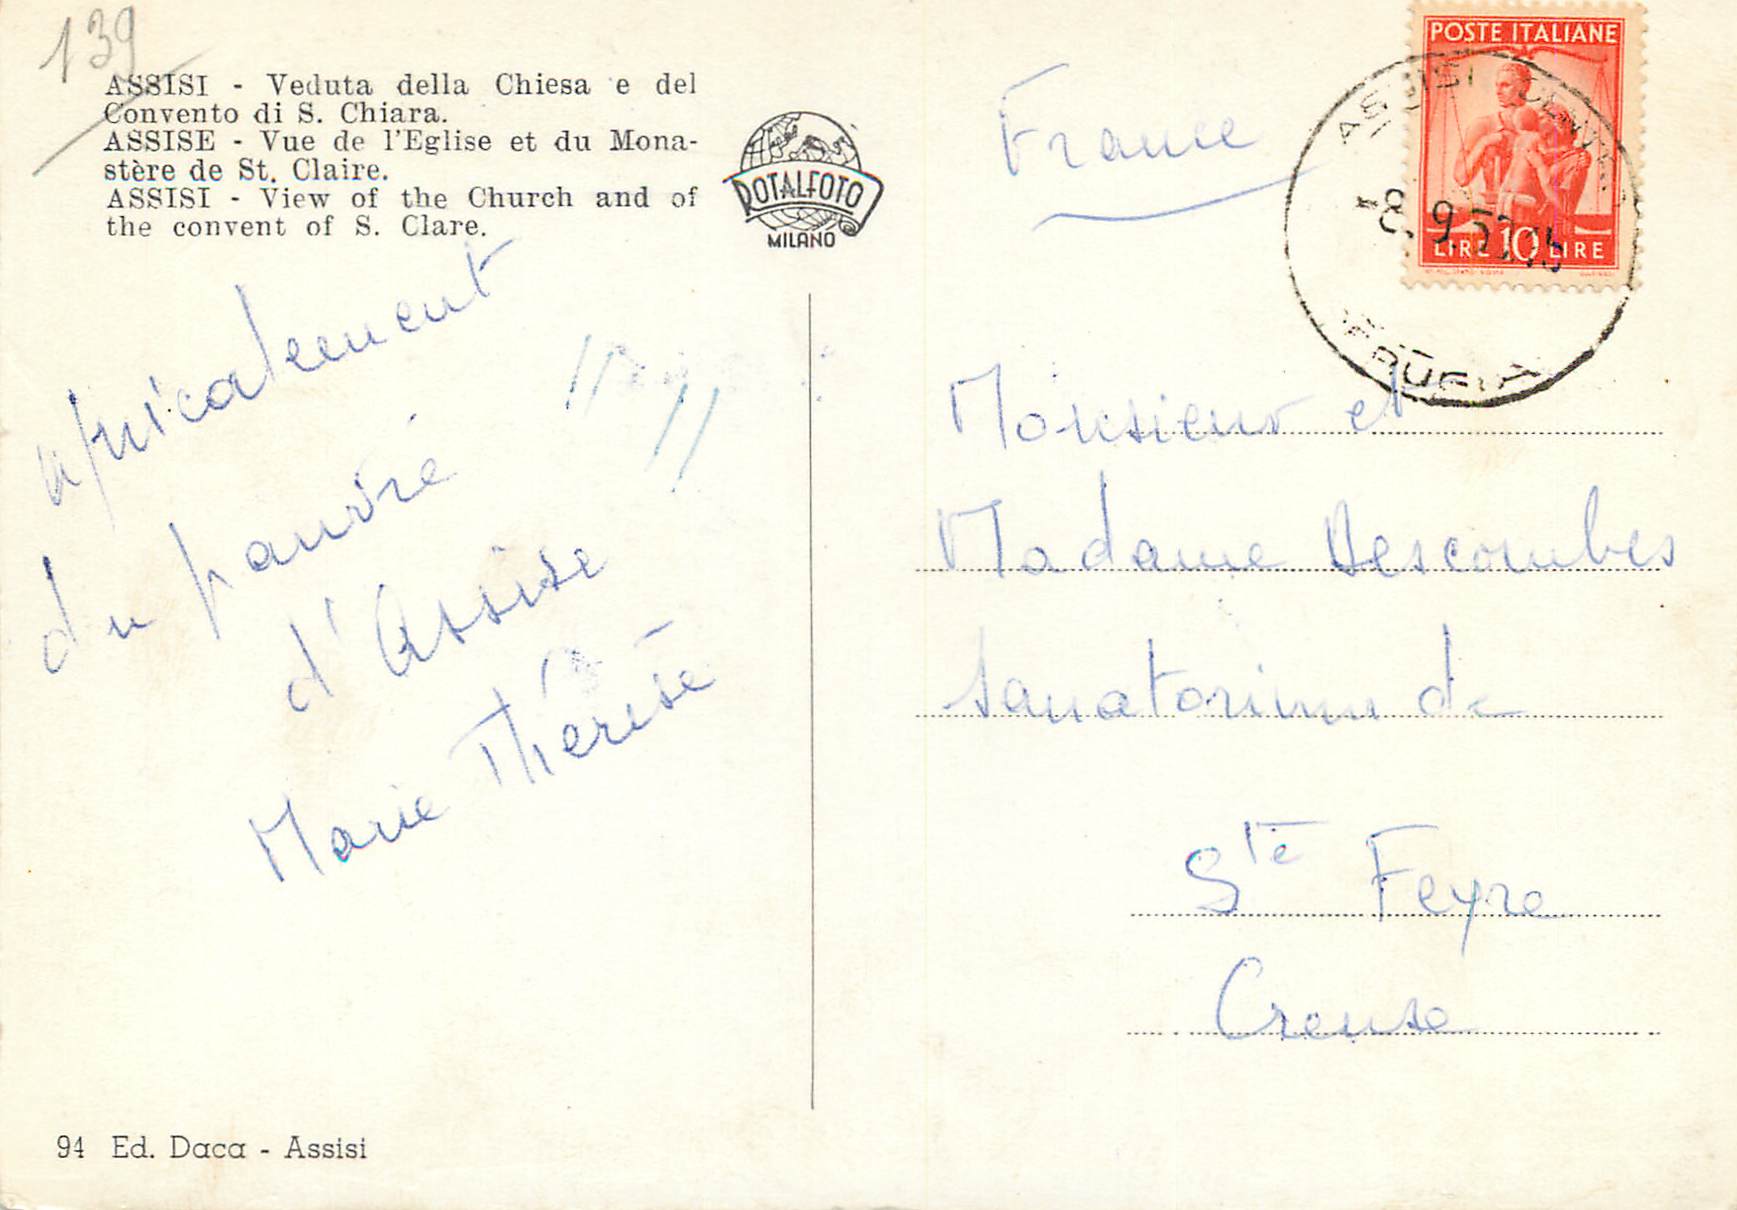 139
ASSISI - Veduta della Chiesa e del
Convento di S. Chiara.
ASSISE - Vue de l'Eglise et du Mona-
stère de St. Claire.
ASSISI - View of the Church and of
the convent of S. Clare.
ROTALFOTO
MILANO
du pauvre
d'Assise
Marie Thérèse
94 Ed. Daca - Assisi
POSTE ITALIANE
LIRE 10 LIRE
ASSISI
8.9.5
France
Monsieur et
Madame Descombes
Sanatorium de
Ste Feyre
Creuse